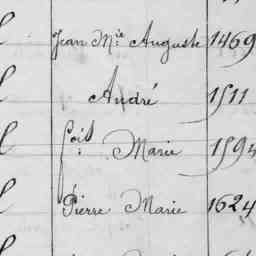 Jean Mie Auguste 1469
André 1511
fois Marie 1594
Pierre Marie 1624